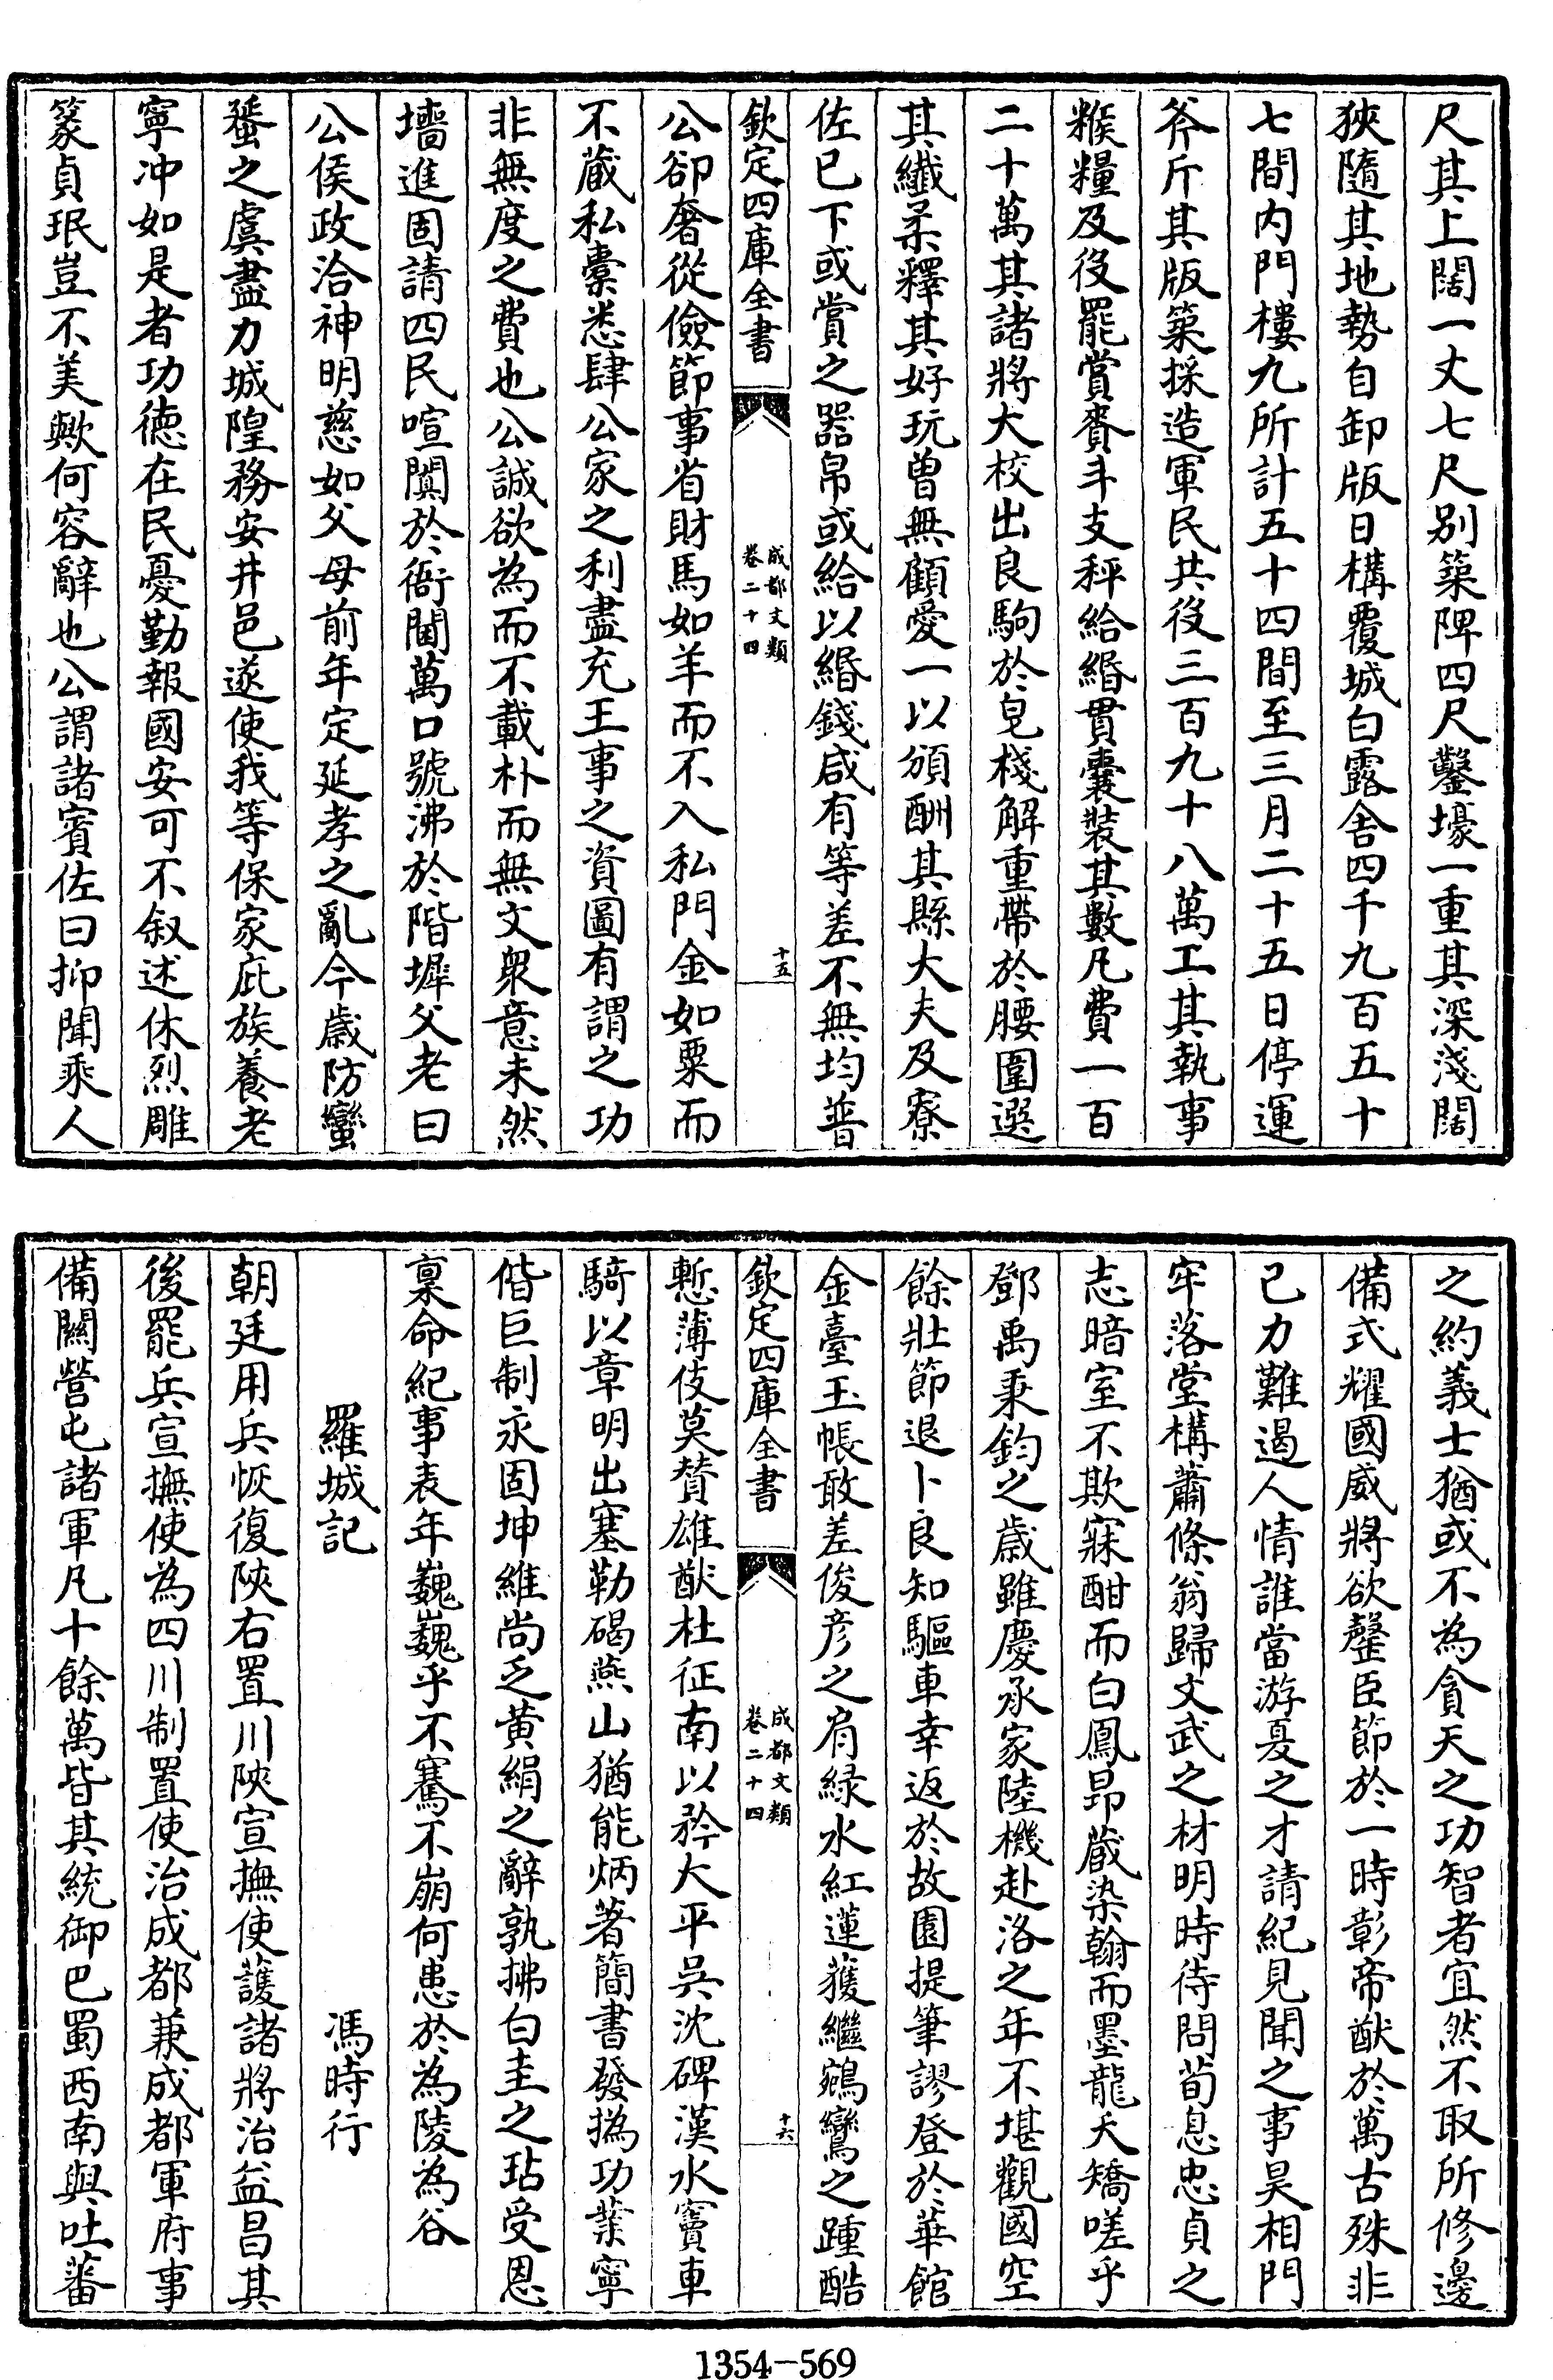 尺其上闊一丈七尺别築陴四尺鑿壕一重其深淺闊
狹隨其地勢自卸版日構覆城白露舎四千九百五十
七間内門樓九所計五十四間至三月二十五日停運
斧斤其版築採造軍民共役三百九十八萬工其執事
糇糧及役罷賞賚斗支秤給緡貫囊裝其數凡費一百
二十萬其諸將大校出良駒於皂棧解重帶於腰圍選
其纎柔釋其好玩曽無顧愛一以頒酬其縣大夫及寮
佐已下或賞之器帛或給以緡錢咸有等差不無均普
欽定四庫全書
成都文類
卷二十四
十五
公卻奢從儉節事省財馬如羊而不入私門金如粟而
不蔵私橐悉肆公家之利盡充王事之資圖有謂之功
非無度之費也公誠欲為而不載朴而無文衆意未然
墻進固請四民喧闐於衙閫萬口號沸於階墀父老曰
公侯政洽神明慈如父母前年定延孝之亂今歲防蠻
蜑之虞盡力城隍務安井邑遂使我等保家庇族養老
寧冲如是者功徳在民憂勤報國安可不叙述休烈雕
篆貞珉豈不美歟何容辭也公謂諸賓佐曰抑聞乘人
之約義士猶或不為貪天之功智者宜然不取所修邊
備式耀國威將欲罄臣節於一時彰帝猷於萬古殊非
己力難遏人情誰當游夏之才請紀見聞之事昊相門
牢落堂構蕭條翁歸文武之材明時待問荀息忠貞之
志暗室不欺寐酣而白鳳昂蔵染翰而墨龍夭矯嗟乎
鄧禹秉鈞之歲雖慶承家陸機赴洛之年不堪觀國空
餘壯節退卜良知驅車幸返於故園提筆謬登於華館
金臺玉帳敢差俊彦之肩緑水紅蓮獲繼鵷鸞之踵酷
欽定四庫全書
成都文類
卷二十四
十六
慙薄伎莫賛雄猷杜征南以矜大平吳沈碑漢水竇車
騎以章明出塞勒碣燕山猶能炳著簡書發撝功業寜
偕巨制永固坤維尚乏黄絹之辭孰拂白圭之玷受恩
稟命紀事表年巍巍乎不騫不崩何患於為陵為谷
羅城記
馮時行
朝廷用兵恢復陜右置川陜宣撫使䕶諸將治益昌其
後罷兵宣撫使為四川制置使治成都兼成都軍府事
備關營屯諸軍凡十餘萬皆其統御巴蜀西南與吐蕃
1354-569